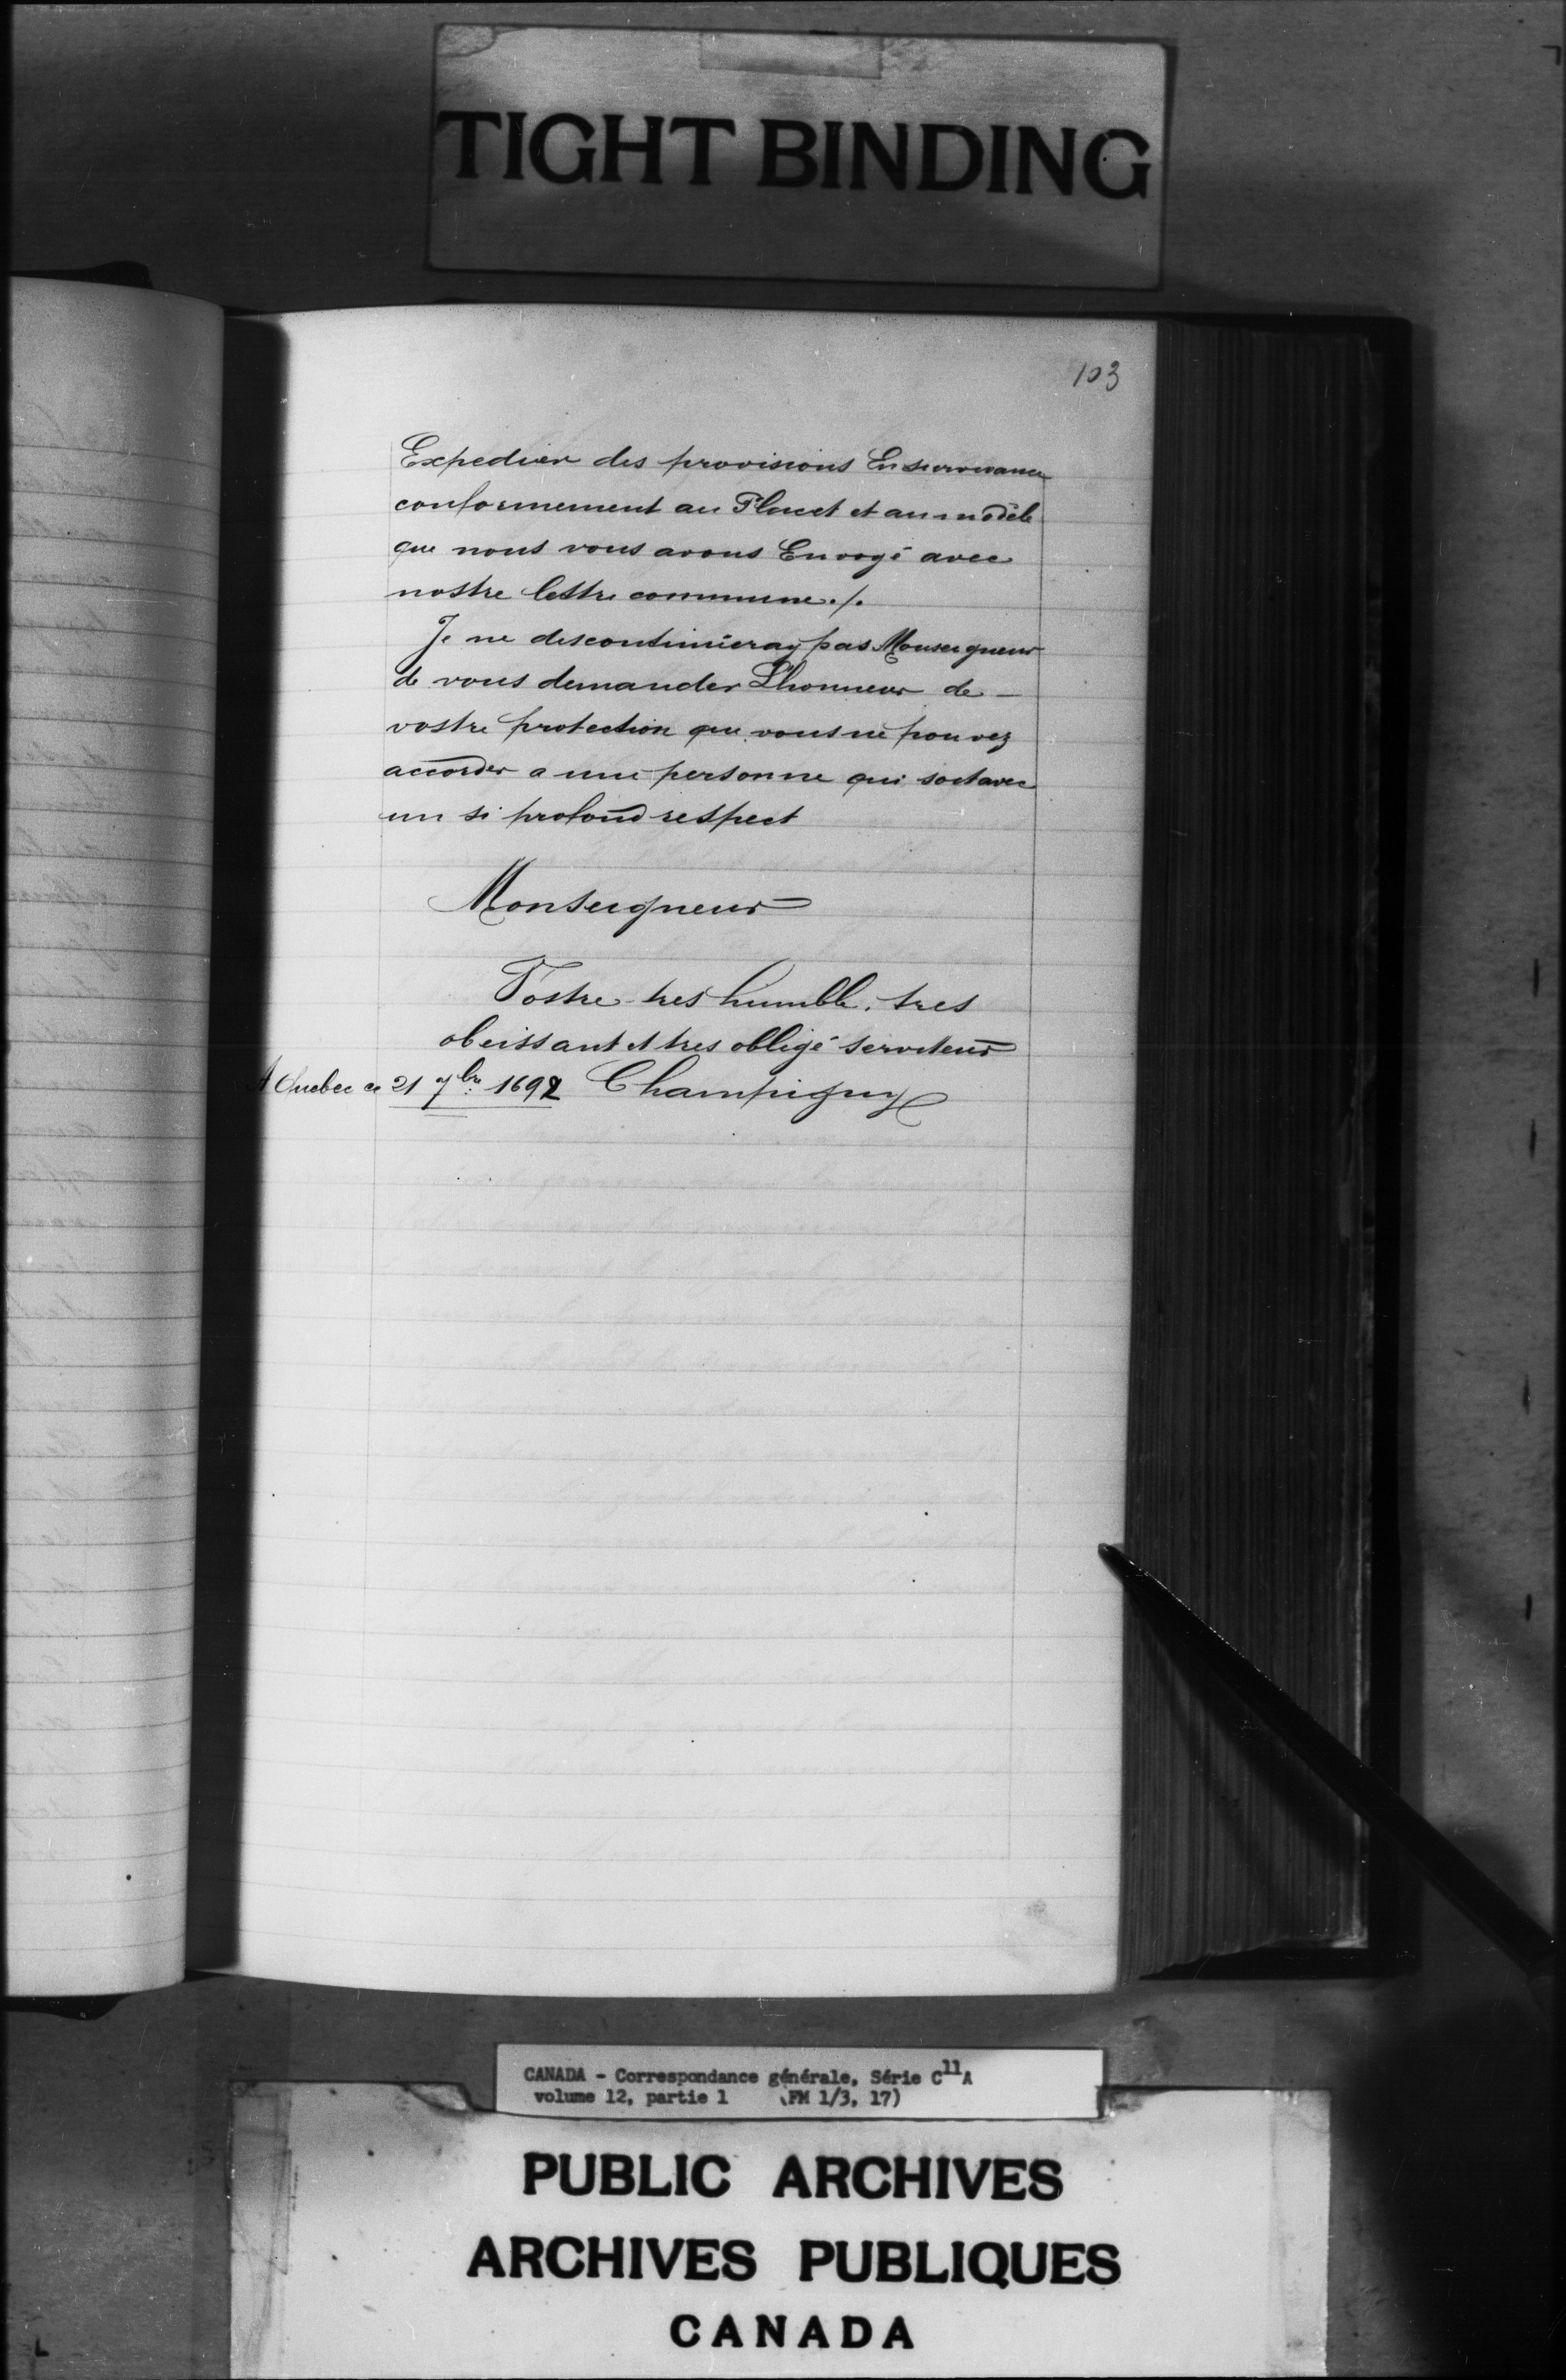 TIGHT BINDING
103
Expedier des provisions En survivance
conformement au Placet et au modele
que nous vous avons Envoyé avec
nostre lettre commune ./.
Je ne discontinüeray pas Monseigneur
de vous demander L'honneur de —
vostre protection que vous ne pouvez
accorder a une personne qui soit avec
un si profond respect
Monseigneur
Vostre tres humble, tres
obeissant et tres obligé serviteur
A Quebec ce 21 7bre 1692 Champigny
CANADA - Correspondance générale, Série C11A
volume 12, partie 1 (FM 1/3, 17)
PUBLIC ARCHIVES
ARCHIVES PUBLIQUES
CANADA